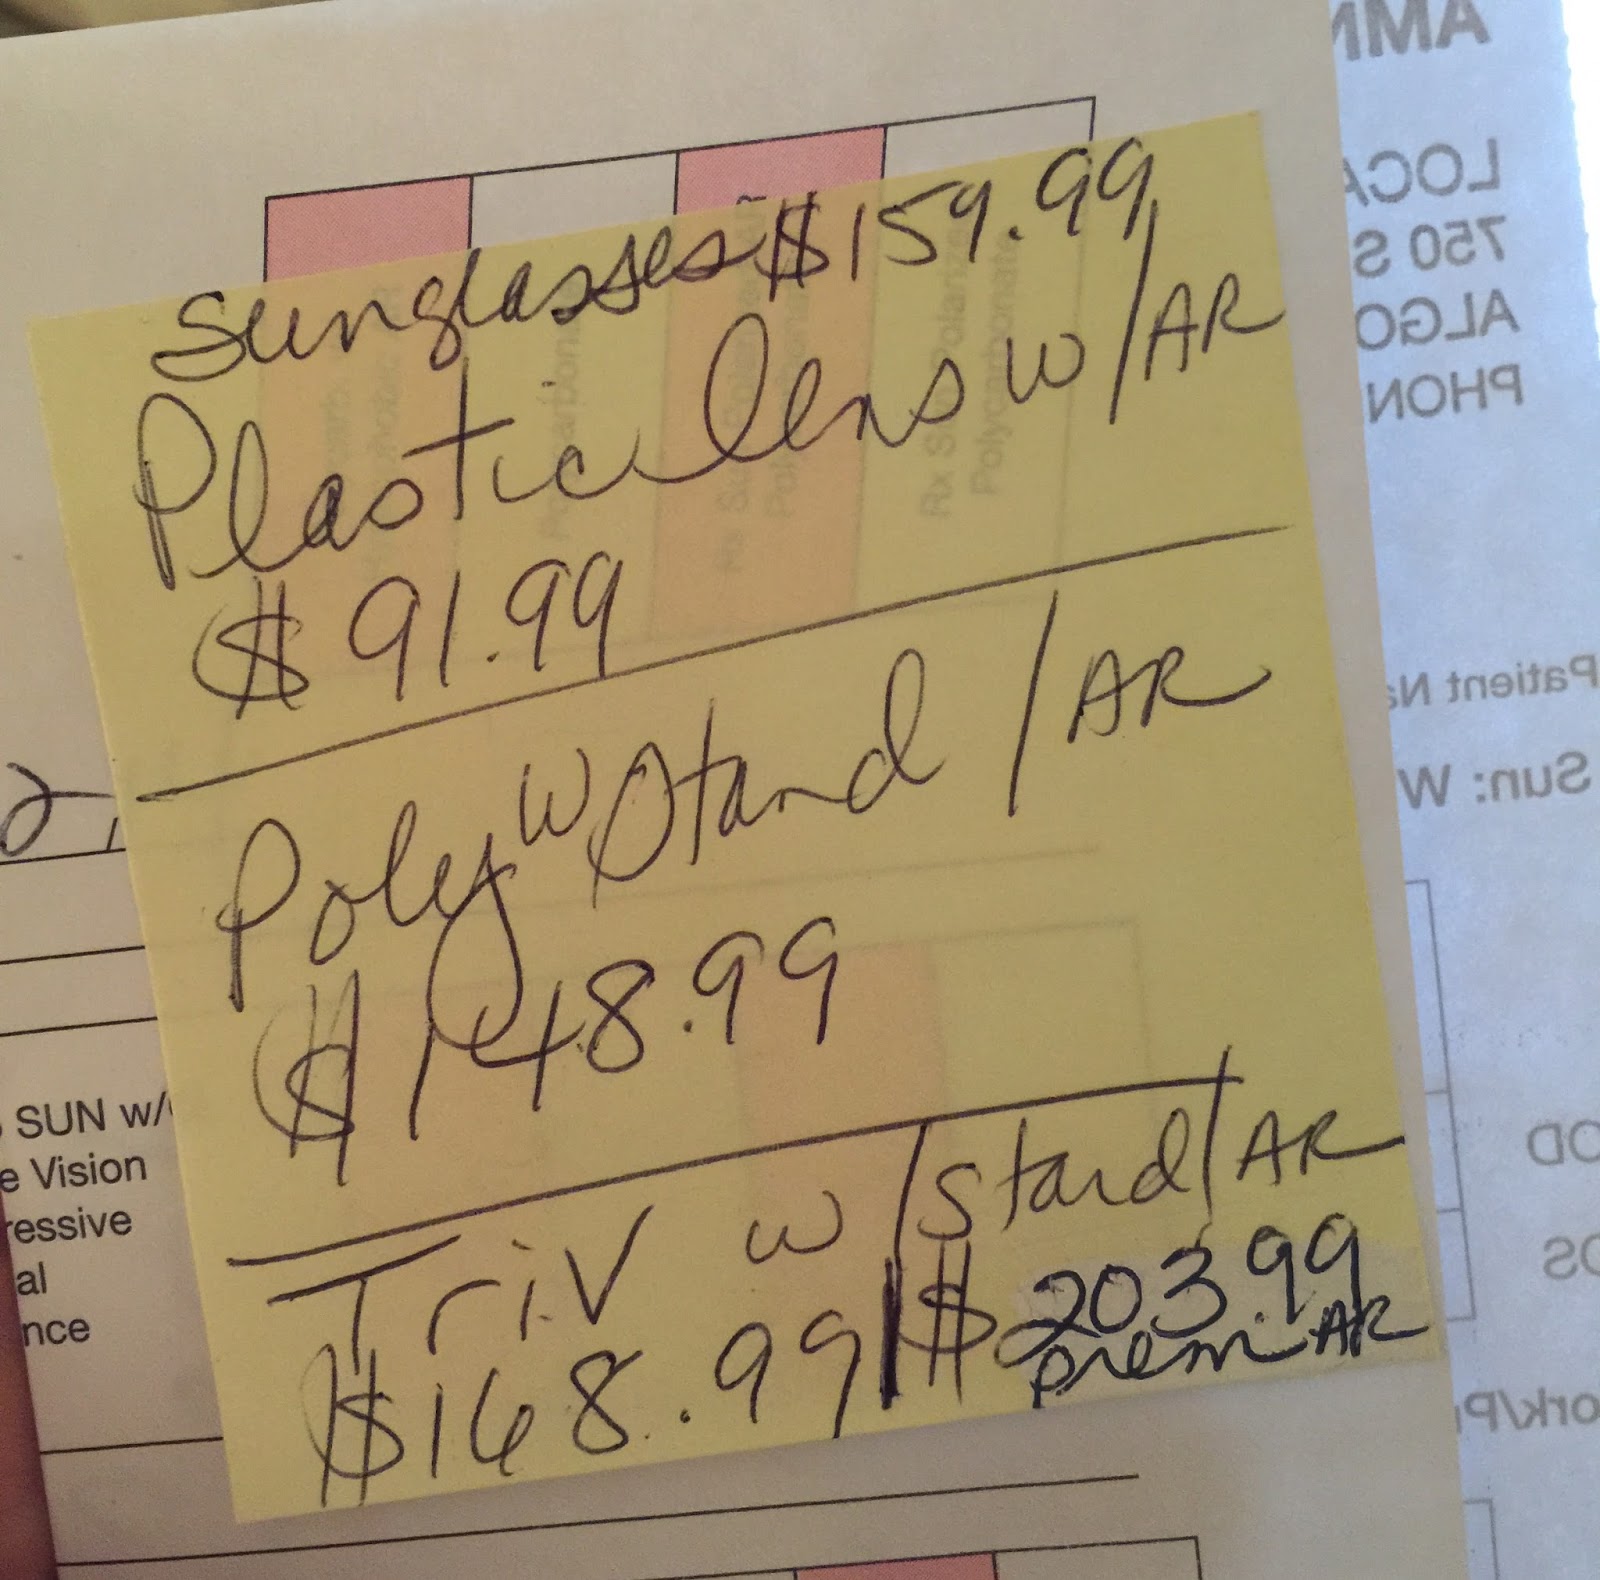 sunglasses $159.99
Plastic lens w/AR
$91.99
Poly w Stand/AR
$148.99
Triv w/stand/AR
$168.99 | $203.99
prem AR
SUN w/
e Vision
ressive
al
nce
Rx S
Polarize
Polycarbonate
AMM
LOCA
750 S
ALGO
PHON
Patient Na
Sun: W
OD
OS
ork/P